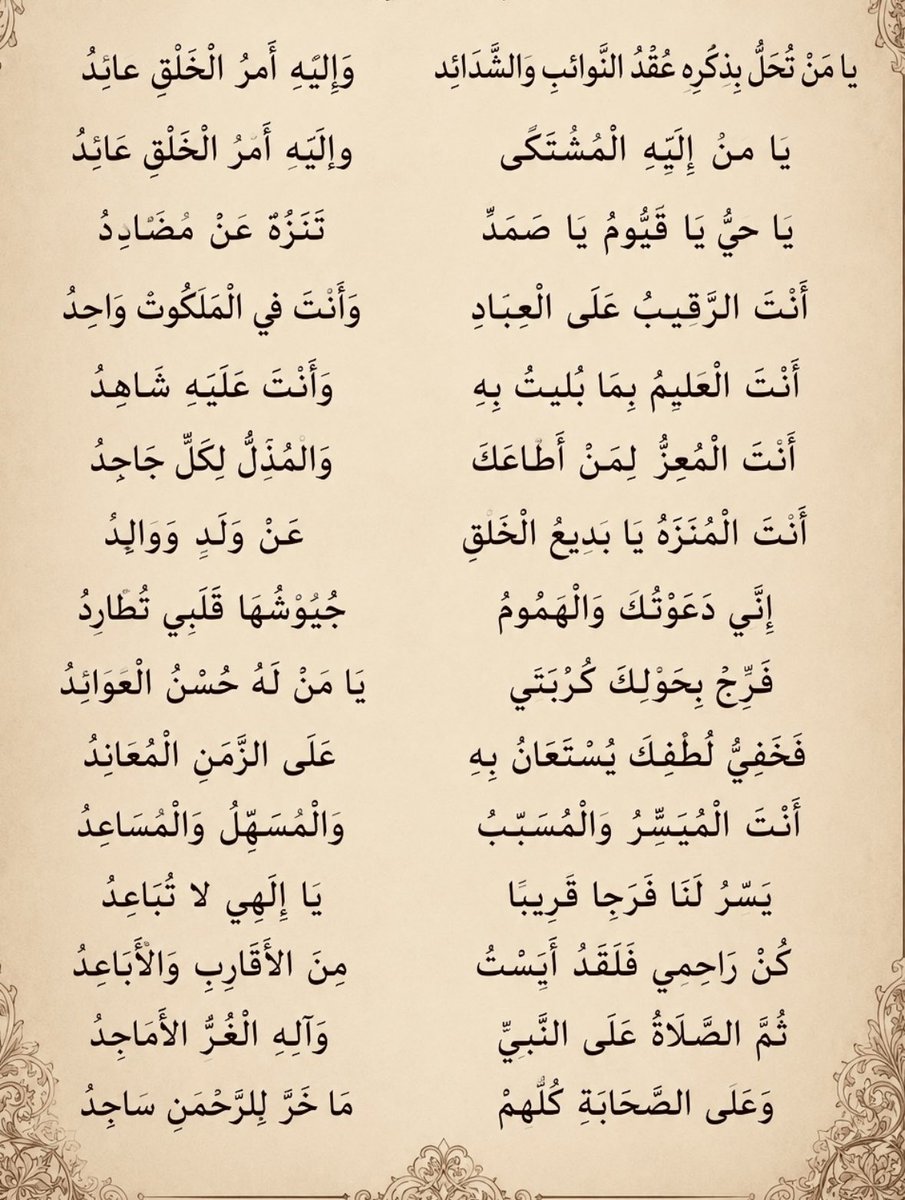 يا مَنْ تُحَلُّ بِذِكْرِهِ عُقْدُ النَّوائبِ وَالشَّدَائِد وَإِلَيْهِ أَمرُ الْخَلْقِ عائِدُ
يَا منْ إِلَيْهِ الْمُشْتَكَى وإلَيْهِ أَمْرُ الْخَلْقِ عَائِدُ
يَا حيُّ يَا قَيُّومُ يَا صَمَدٌ تَنَزُهٌ عَنْ مُضَادِدُ
أَنْتَ الرَّقِيبُ عَلَى الْعِبَادِ وَأَنْتَ في الْمَلَكُوتْ وَاحِدُ
أَنْتَ الْعَلِيمُ بِمَا بُليتُ بِهِ وَأَنْتَ عَلَيَهِ شَاهِدُ
أَنْتَ الْمُعِزُّ لِمَنْ أَطَاعَكَ وَالْمُذِلُّ لِكَلِّ جَاجِدُ
أَنْتَ الْمُنَزَهُ يَا بَدِيعُ الْخَلْقِ عَنْ وَلَدٍ وَوَالِدُ
إِنَّي دَعَوْتُكَ وَالْهَمُومُ جُيُوْشُهَا قَلَبِي تُطَارِدُ
فَرِّجْ بِحَوْلِكَ كُرْبَتَي يَا مَنْ لَهُ حُسْنُ الْعَوَائِدُ
فَخَفِيُّ لُطْفِكَ يُسْتَعَانُ بِهِ عَلَى الزَّمَنِ الْمُعَانِدُ
أَنْتَ الْمُيَسِّرُ وَالْمُسَبّبُ وَالْمُسَهِّلُ وَالْمُسَاعِدُ
يَسّرُ لَنَا فَرَجِا قَرِيبًا يَا إِلَهِي لا تُبَاعِدُ
كُنْ رَاحِمِي فَلَقَدُ أَيَسْتُ مِنَ الأَقَارِبِ وَالْأَبَاعِدُ
ثُمَّ الصَّلَاةُ عَلَى النَّبِيِّ وَآلِهِ الْغُرُّ الأَمَاجِدُ
وَعَلَى الصَّحَابَةِ كُلُّهِمْ مَا خَرَّ لِلرَّحْمَنِ سَاجِدُ